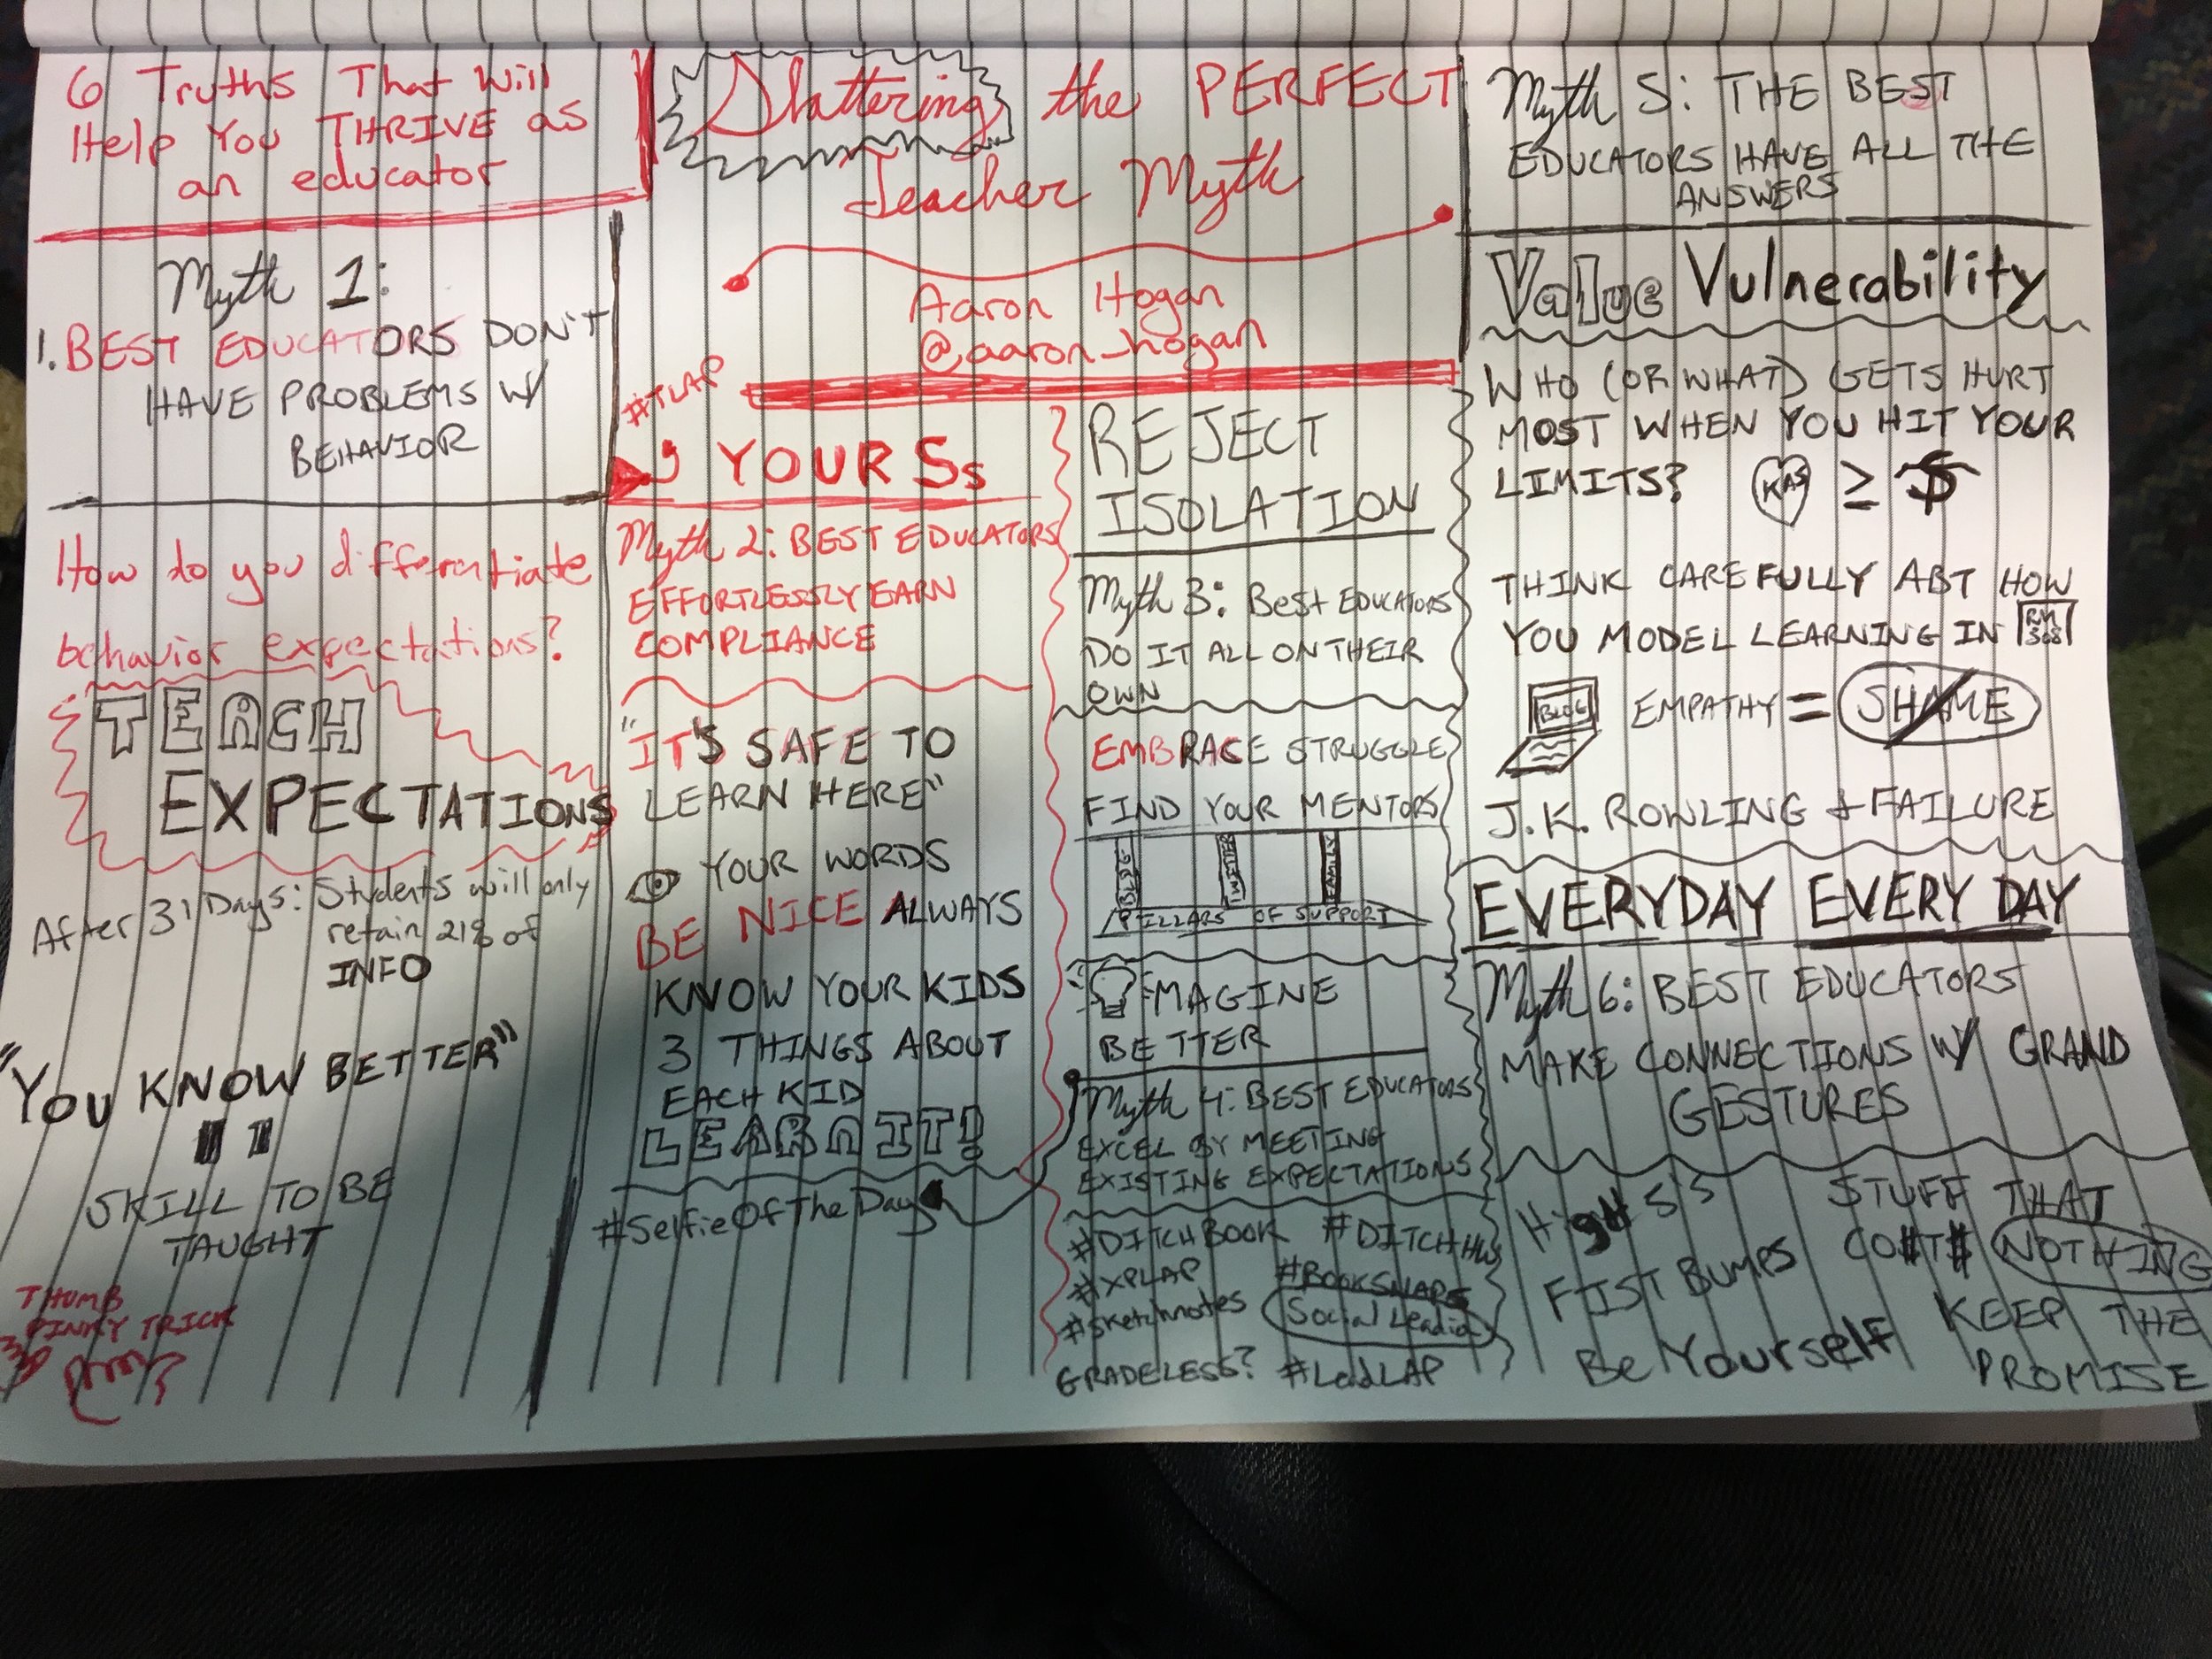 6 Truths That Will
Help You THRIVE as
an educator
Shattering the PERFECT
Teacher Myth
Aaron Hogan
@aaron_hogan
Myth 1:
1. BEST EDUCATORS DON'T
HAVE PROBLEMS W/
BEHAVIOR
How do you differentiate
behavior expectations?
TEACH
EXPECTATIONS
After 31 Days: Students will only
retain 21% of
INFO
"YOU KNOW BETTER"
SKILL TO BE
TAUGHT
THUMB
PINKY TRICK
#TLAP
YOUR Ss
Myth 2: BEST EDUCATORS
EFFORTLESSLY EARN
COMPLIANCE
"IT'S SAFE TO
LEARN HERE"
YOUR WORDS
BE NICE ALWAYS
KNOW YOUR KIDS
3 THINGS ABOUT
EACH KID
LEARN IT!
#SelfieOfTheDay
REJECT
ISOLATION
Myth 3: Best EDUCATORS
DO IT ALL ON THEIR
OWN
EMBRACE STRUGGLE
FIND YOUR MENTORS
PILLARS OF SUPPORT
IMAGINE
BETTER
Myth 4: BEST EDUCATORS
EXCEL BY MEETING
EXISTING EXPECTATIONS
#DITCHBOOK #DITCHHW
#XPLAP #BOOKSNAPS
#sketchnotes Social Leadia
GRADELESS? #LeadLAP
Myth 5: THE BEST
EDUCATORS HAVE ALL THE
ANSWERS
Value Vulnerability
WHO (OR WHAT) GETS HURT
MOST WHEN YOU HIT YOUR
LIMITS? KAS ≥ $
THINK CAREFULLY ABT HOW
YOU MODEL LEARNING IN RM 368
BLOG EMPATHY = SHAME
J.K. ROWLING & FAILURE
EVERYDAY EVERY DAY
Myth 6: BEST EDUCATORS
MAKE CONNECTIONS W/ GRAND
GESTURES
HIGH 5'S
FIST BUMPS
Be Yourself
STUFF THAT
CO$T$ NOTHING
KEEP THE
PROMISE